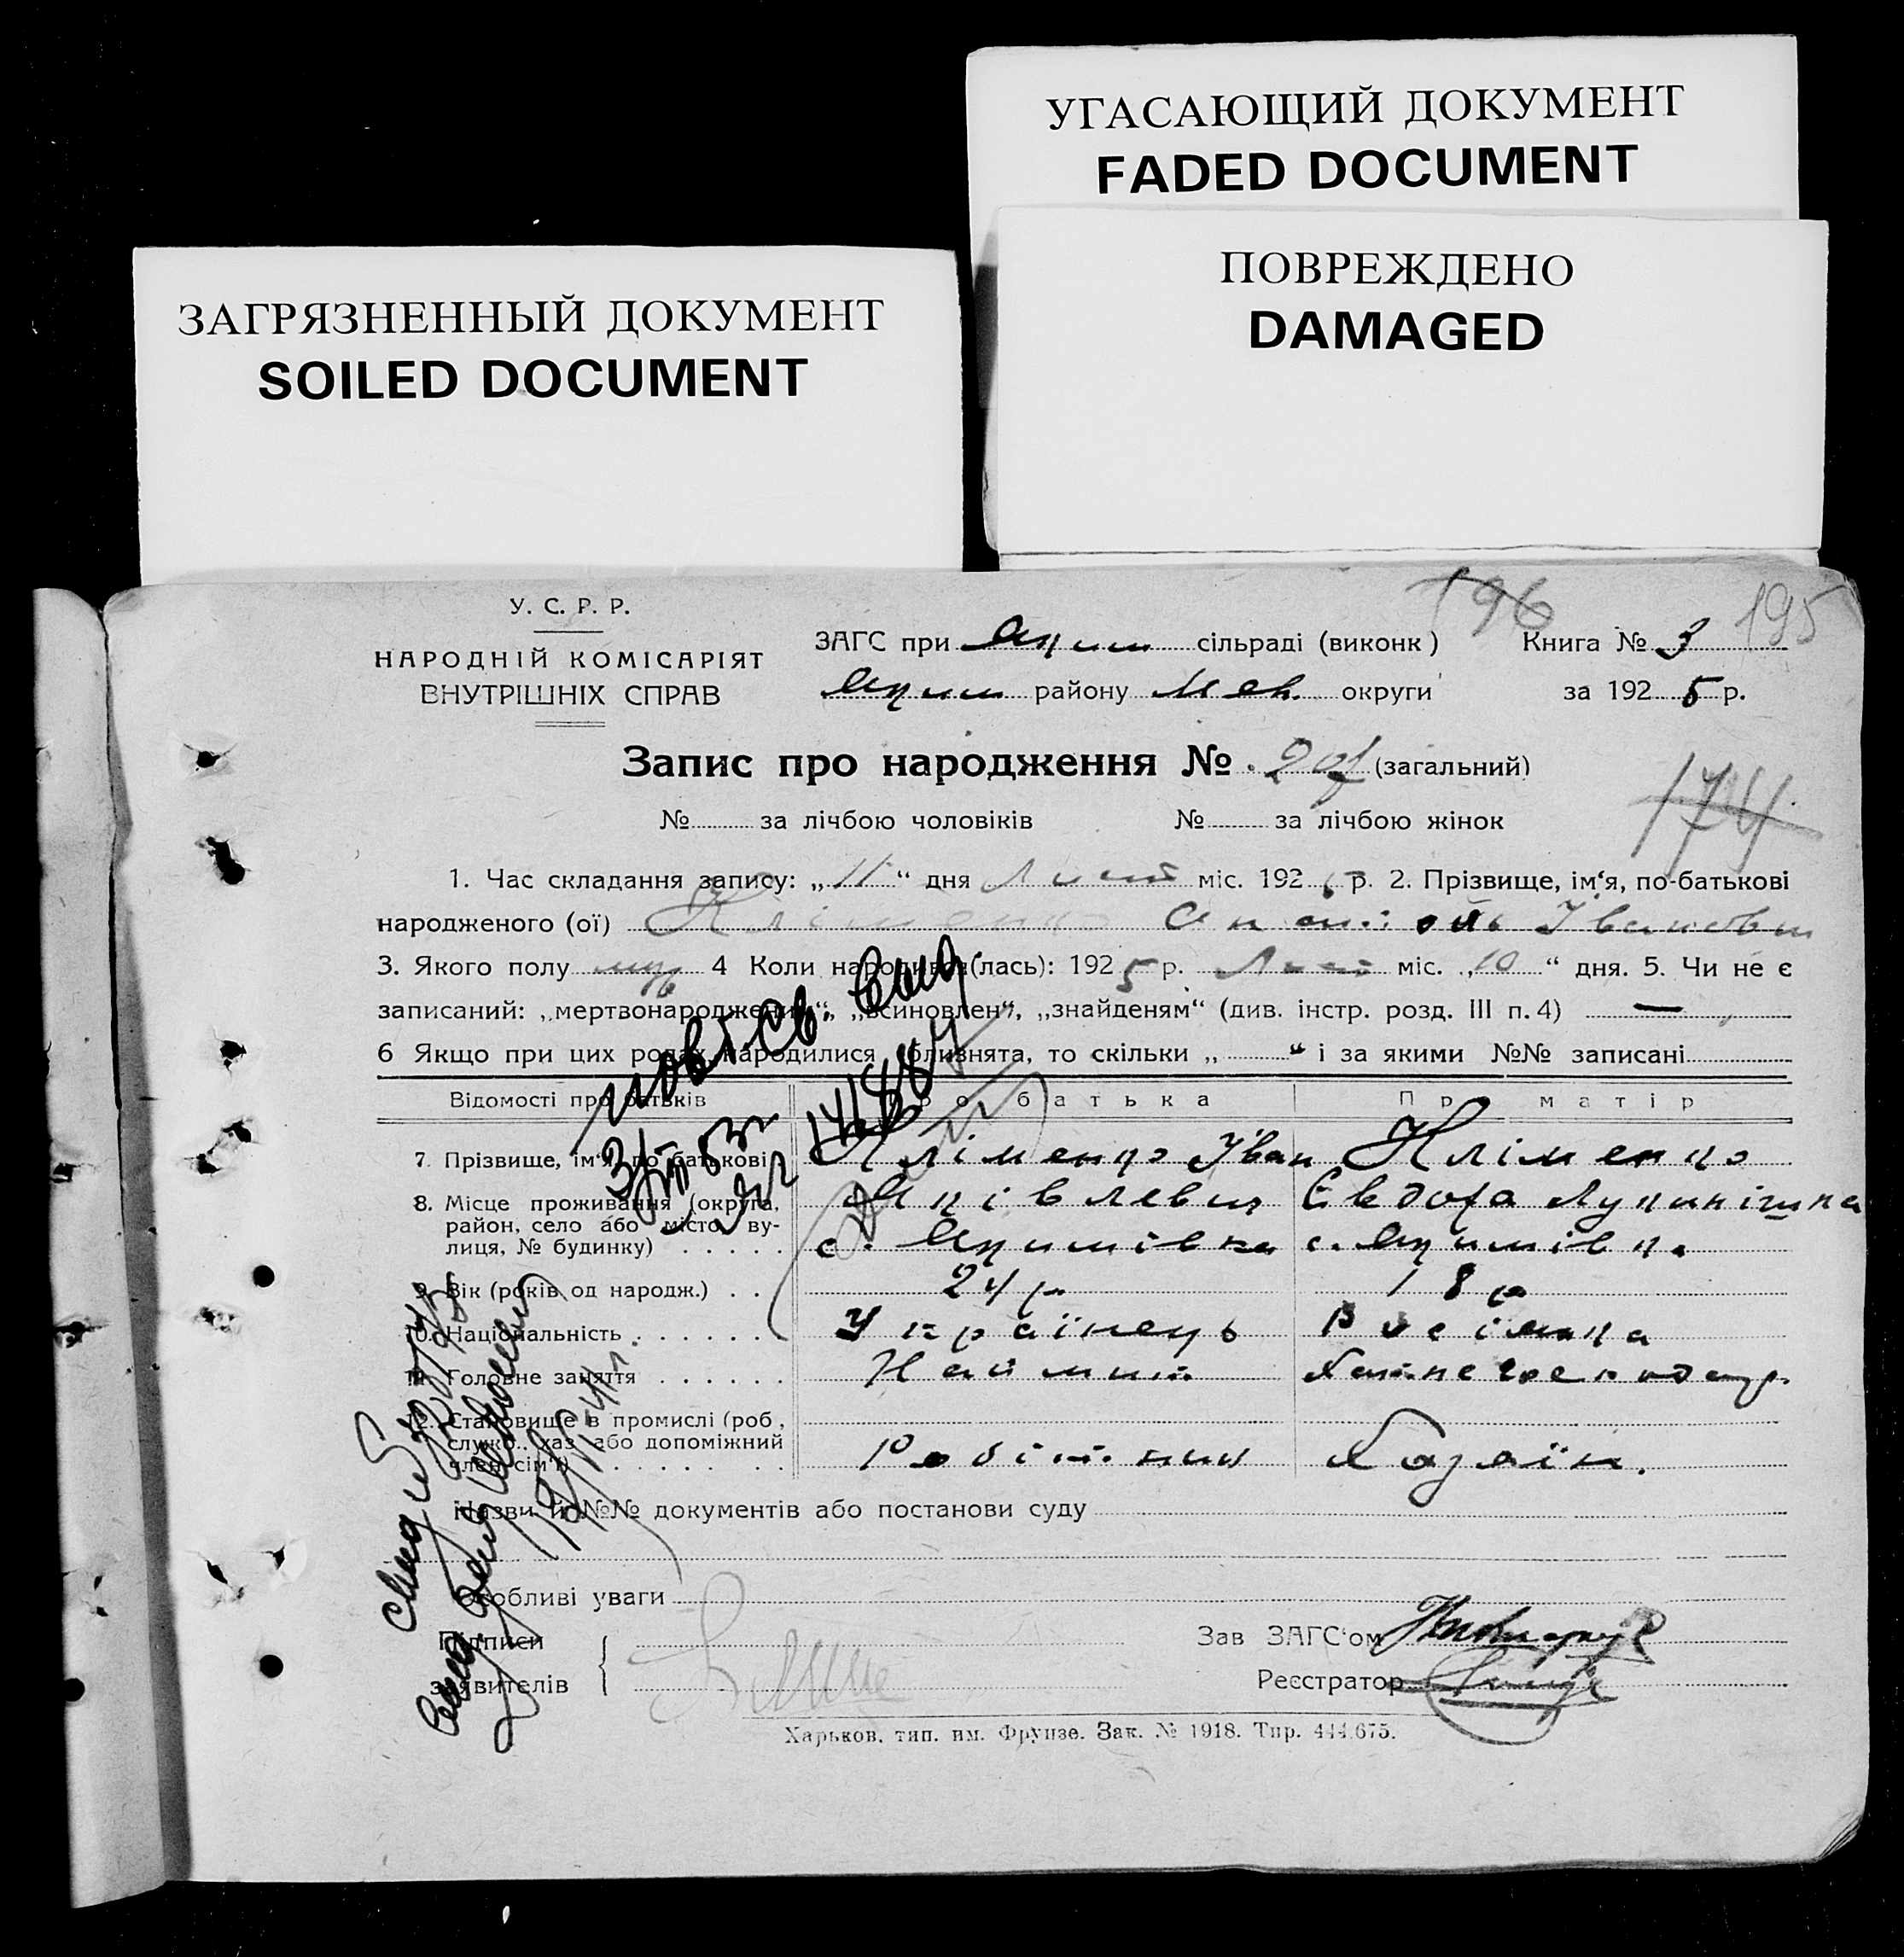 УГАСАЮЩИЙ ДОКУМЕНТ
FADED DOCUMENT
ПОВРЕЖДЕНО
DAMAGED
ЗАГРЯЗНЕННЫЙ ДОКУМЕНТ
SOILED DOCUMENT
196 195
У. С. Р. Р.
НАРОДНІЙ КОМІСАРІЯТ
ВНУТРІШНІХ СПРАВ
ЗАГС при Яким сільраді (виконк) Книга № 3
Яким району Мел. округи за 1925 р.
Запис про народження № 207 (загальний)
174
№ за лічбою чоловіків № за лічбою жінок
1. Час складання запису: „11“ дня Лист міс. 1925 р. 2. Прізвище, ім‘я, по-батькові
народженого (ої) Кліменко Анатолій Іванович
3. Якого полу муж 4 Коли народився(лась): 1925 р. Лист міс. „10“ дня. 5. Чи не є
записаний: „мертвонароджений“, „всиновлен“, „знайденям“ (див. інстр. розд. III п. 4) —
6 Якщо при цих родах народилися близнята, то скільки „ “ і за якими №№ записані
Відомості про батьків Про батька Про матір
7. Прізвище, ім‘я, по батькові Кліменко Іван Кліменко
8. Місце проживання (округа, Яківлевич Євдоха
район, село або місто, ву-
лиця, № будинку) с. Якимівка с. Якимівк.
9. Вік (років од народж.) 24 р 18 р
10. Національність Українець Росіянка
11. Головне заняття Наймит Хатнє господар.
12. Становище в промислі (роб.,
служб., хаз. або допоміжний
член сім‘ї) Робітник Хазяїн.
Назви й №№ документів або постанови суду
Особливі уваги
Підписи
заявителів
Зав ЗАГС‘ом
Реєстратор
Харьков, тип. им. Фрунзе. Зак. № 1918. Тир. 444.675.